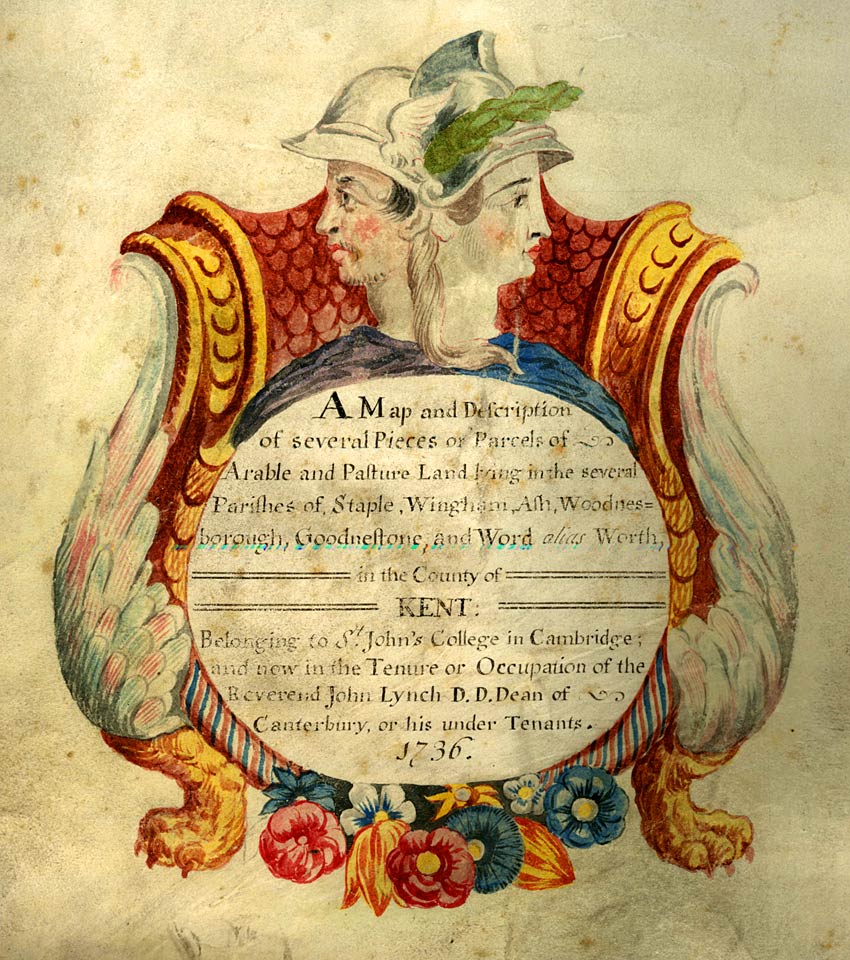 A Map and Deſcription
of several Pieces or Parcels of
Arable and Paſture Land lying in the several
Pariſhes of, Staple, Wingham, Aſh, Woodnes=
borough, Goodneſtone, and Word alias Worth,
in the County of
KENT:
Belonging to St. John's College in Cambridge;
and now in the Tenure or Occupation of the
Reverend John Lynch D.D. Dean of
Canterbury, or his under Tenants.
1736.